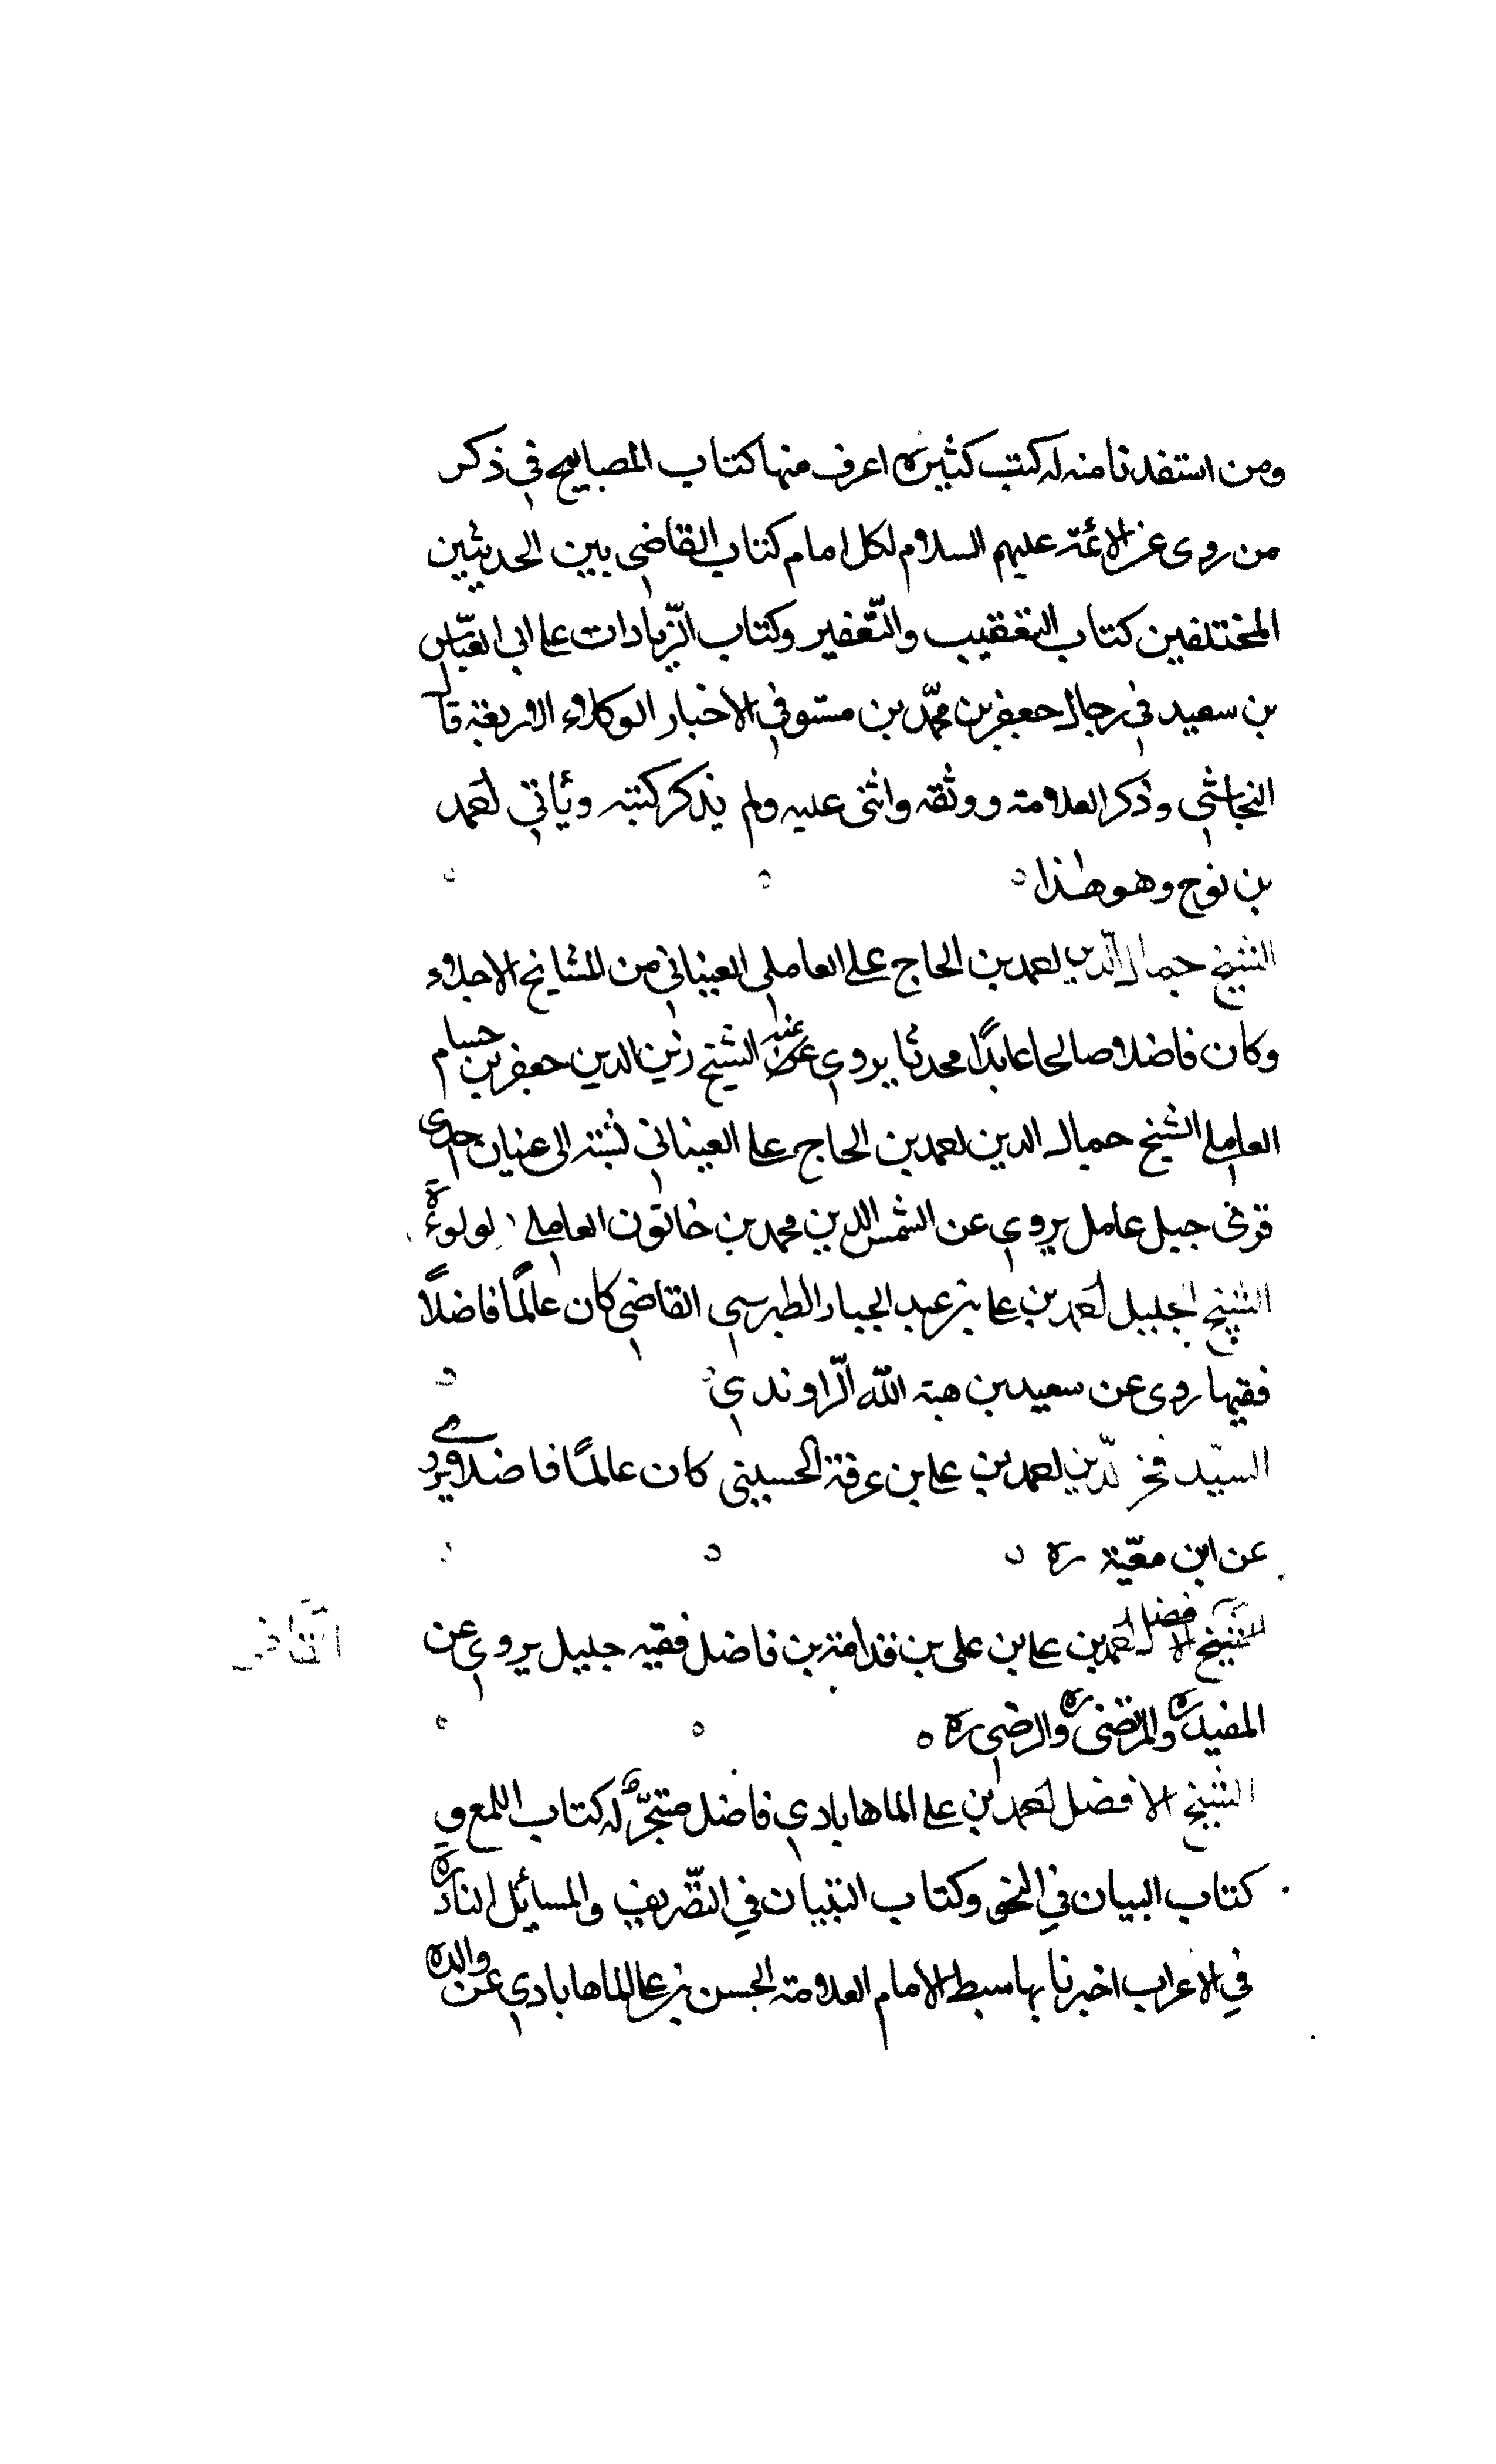 ومن استفدنا منه له كتب كثيره اعرف منها كتاب المصابيح في ذكر
من روى عن الائمة عليهم السلام لكل امام كتاب القاضي بين الحديثين
المختلفين كتاب التعقيب والتعفير وكتاب الزّيادات على ابى العبّاس
بن سعيد في رجال جعفر بن محمّد بن مستوفي الاخبار الوكلاء الاربعة قال
النجاشي وذكر العلامة ووثقه واثنى عليه ولم يذكر كتبه وياتي احمد
بن نوح وهو هذا
الشيخ جمال الدين احمد بن الحاج على العاملي العيناني من المشايخ الاجلاء
وكان فاضلا صالحا عابدًا محدثا يروي عنه الشيخ زين الدين جعفر بن حسام
العاملي الشيخ جمال الدين احمد بن الحاج على العيناني نسبته الى عينان احدى
قرى جبل عامل يروي عن الشمس الدين محمد بن خاتون العاملي لولوءة
الشيخ الجليل احمد بن على بن عبد الجبار الطبرسي القاضي كان عالمًا فاضلًا
فقيها روى عن سعيد بن هبة الله الرّاوندي
السيّد فخر الدّين احمد بن على بن عرفة الحسيني كان عالمًا فاضلا يروي
عن ابن معيّة ره
الشيخ الافضل احمد بن على بن على بن قدامة بن فاضل فقيه جليل يروي عن
القاضي
المفيد ره والمرتضى ره والرضي ره
الشيخ الافضل احمد بن على الماهابادي فاضل متبحّر له كتاب اللمع و
كتاب البيان في النحو وكتاب التبيان في التّصريف والمسائل النادرة
في الاعراب اخبرنا بها سبط الامام العلامة الحسن بن على الماهابادي عن والده